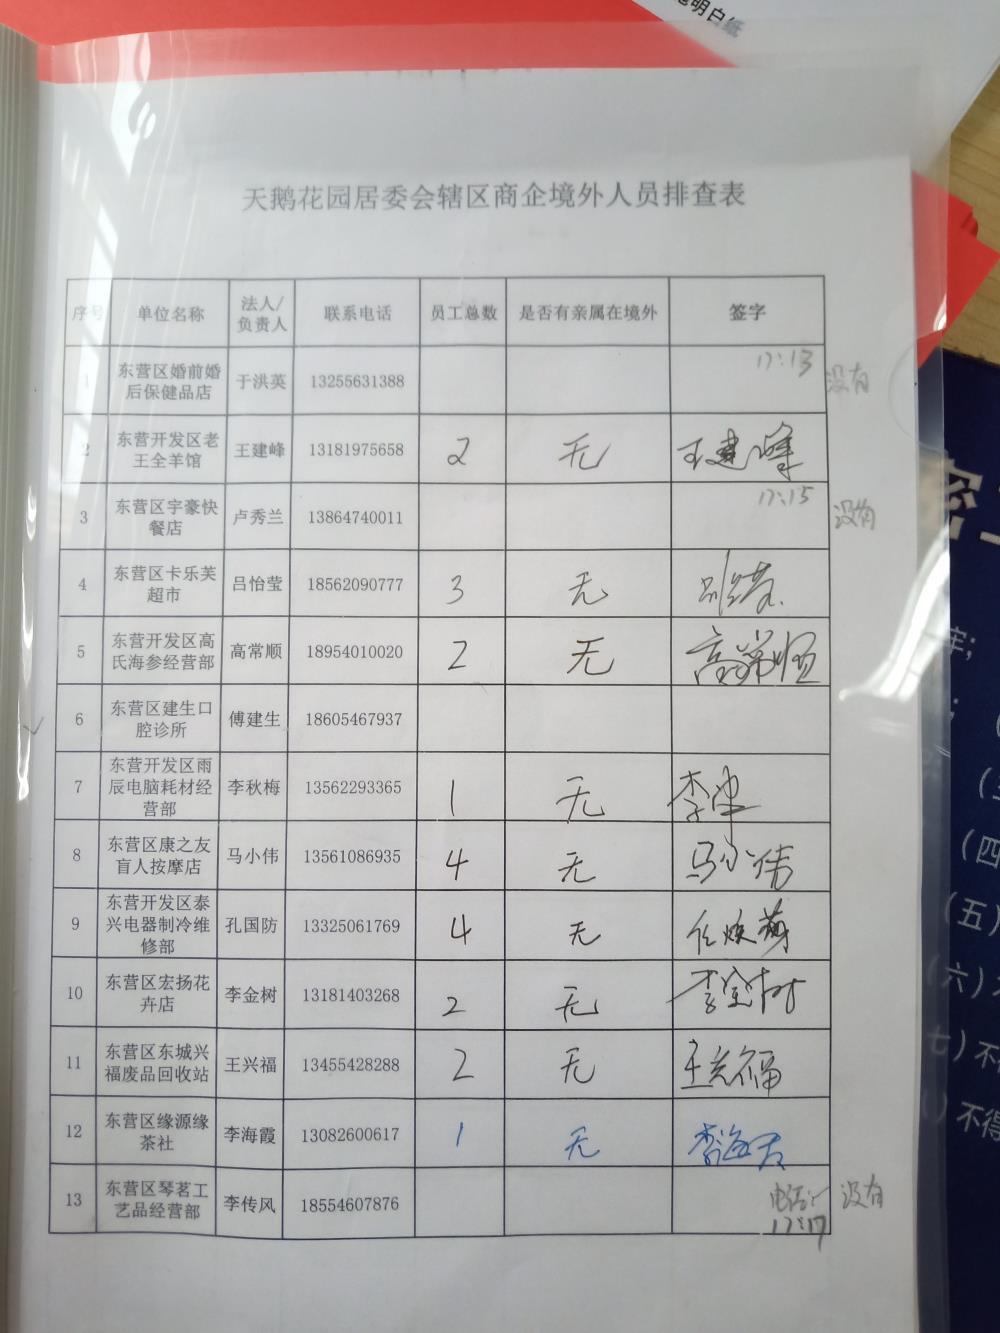 明白纸
天鹅花园居委会辖区商企境外人员排查表
序号 单位名称 法人/负责人 联系电话 员工总数 是否有亲属在境外 签字
1 东营区婚前婚后保健品店 于洪英 13255631388 17:13 没有
2 东营开发区老王全羊馆 王建峰 13181975658 2 无 王建峰
3 东营区宇豪快餐店 卢秀兰 13864740011 17:15 没有
4 东营区卡乐芙超市 吕怡莹 18562090777 3 无
5 东营开发区高氏海参经营部 高常顺 18954010020 2 无 高常顺
6 东营区建生口腔诊所 傅建生 18605467937
7 东营开发区雨辰电脑耗材经营部 李秋梅 13562293365 1 无
8 东营区康之友盲人按摩店 马小伟 13561086935 4 无 马小伟
9 东营开发区泰兴电器制冷维修部 孔国防 13325061769 4 无
10 东营区宏扬花卉店 李金树 13181403268 2 无 李金树
11 东营区东城兴福废品回收站 王兴福 13455428288 2 无 王兴福
12 东营区缘源缘茶社 李海霞 13082600617 1 无 李海霞
13 东营区琴茗工艺品经营部 李传风 18554607876 电话 17:17 没有
(四
(五)
(六)不
七)不
)不得